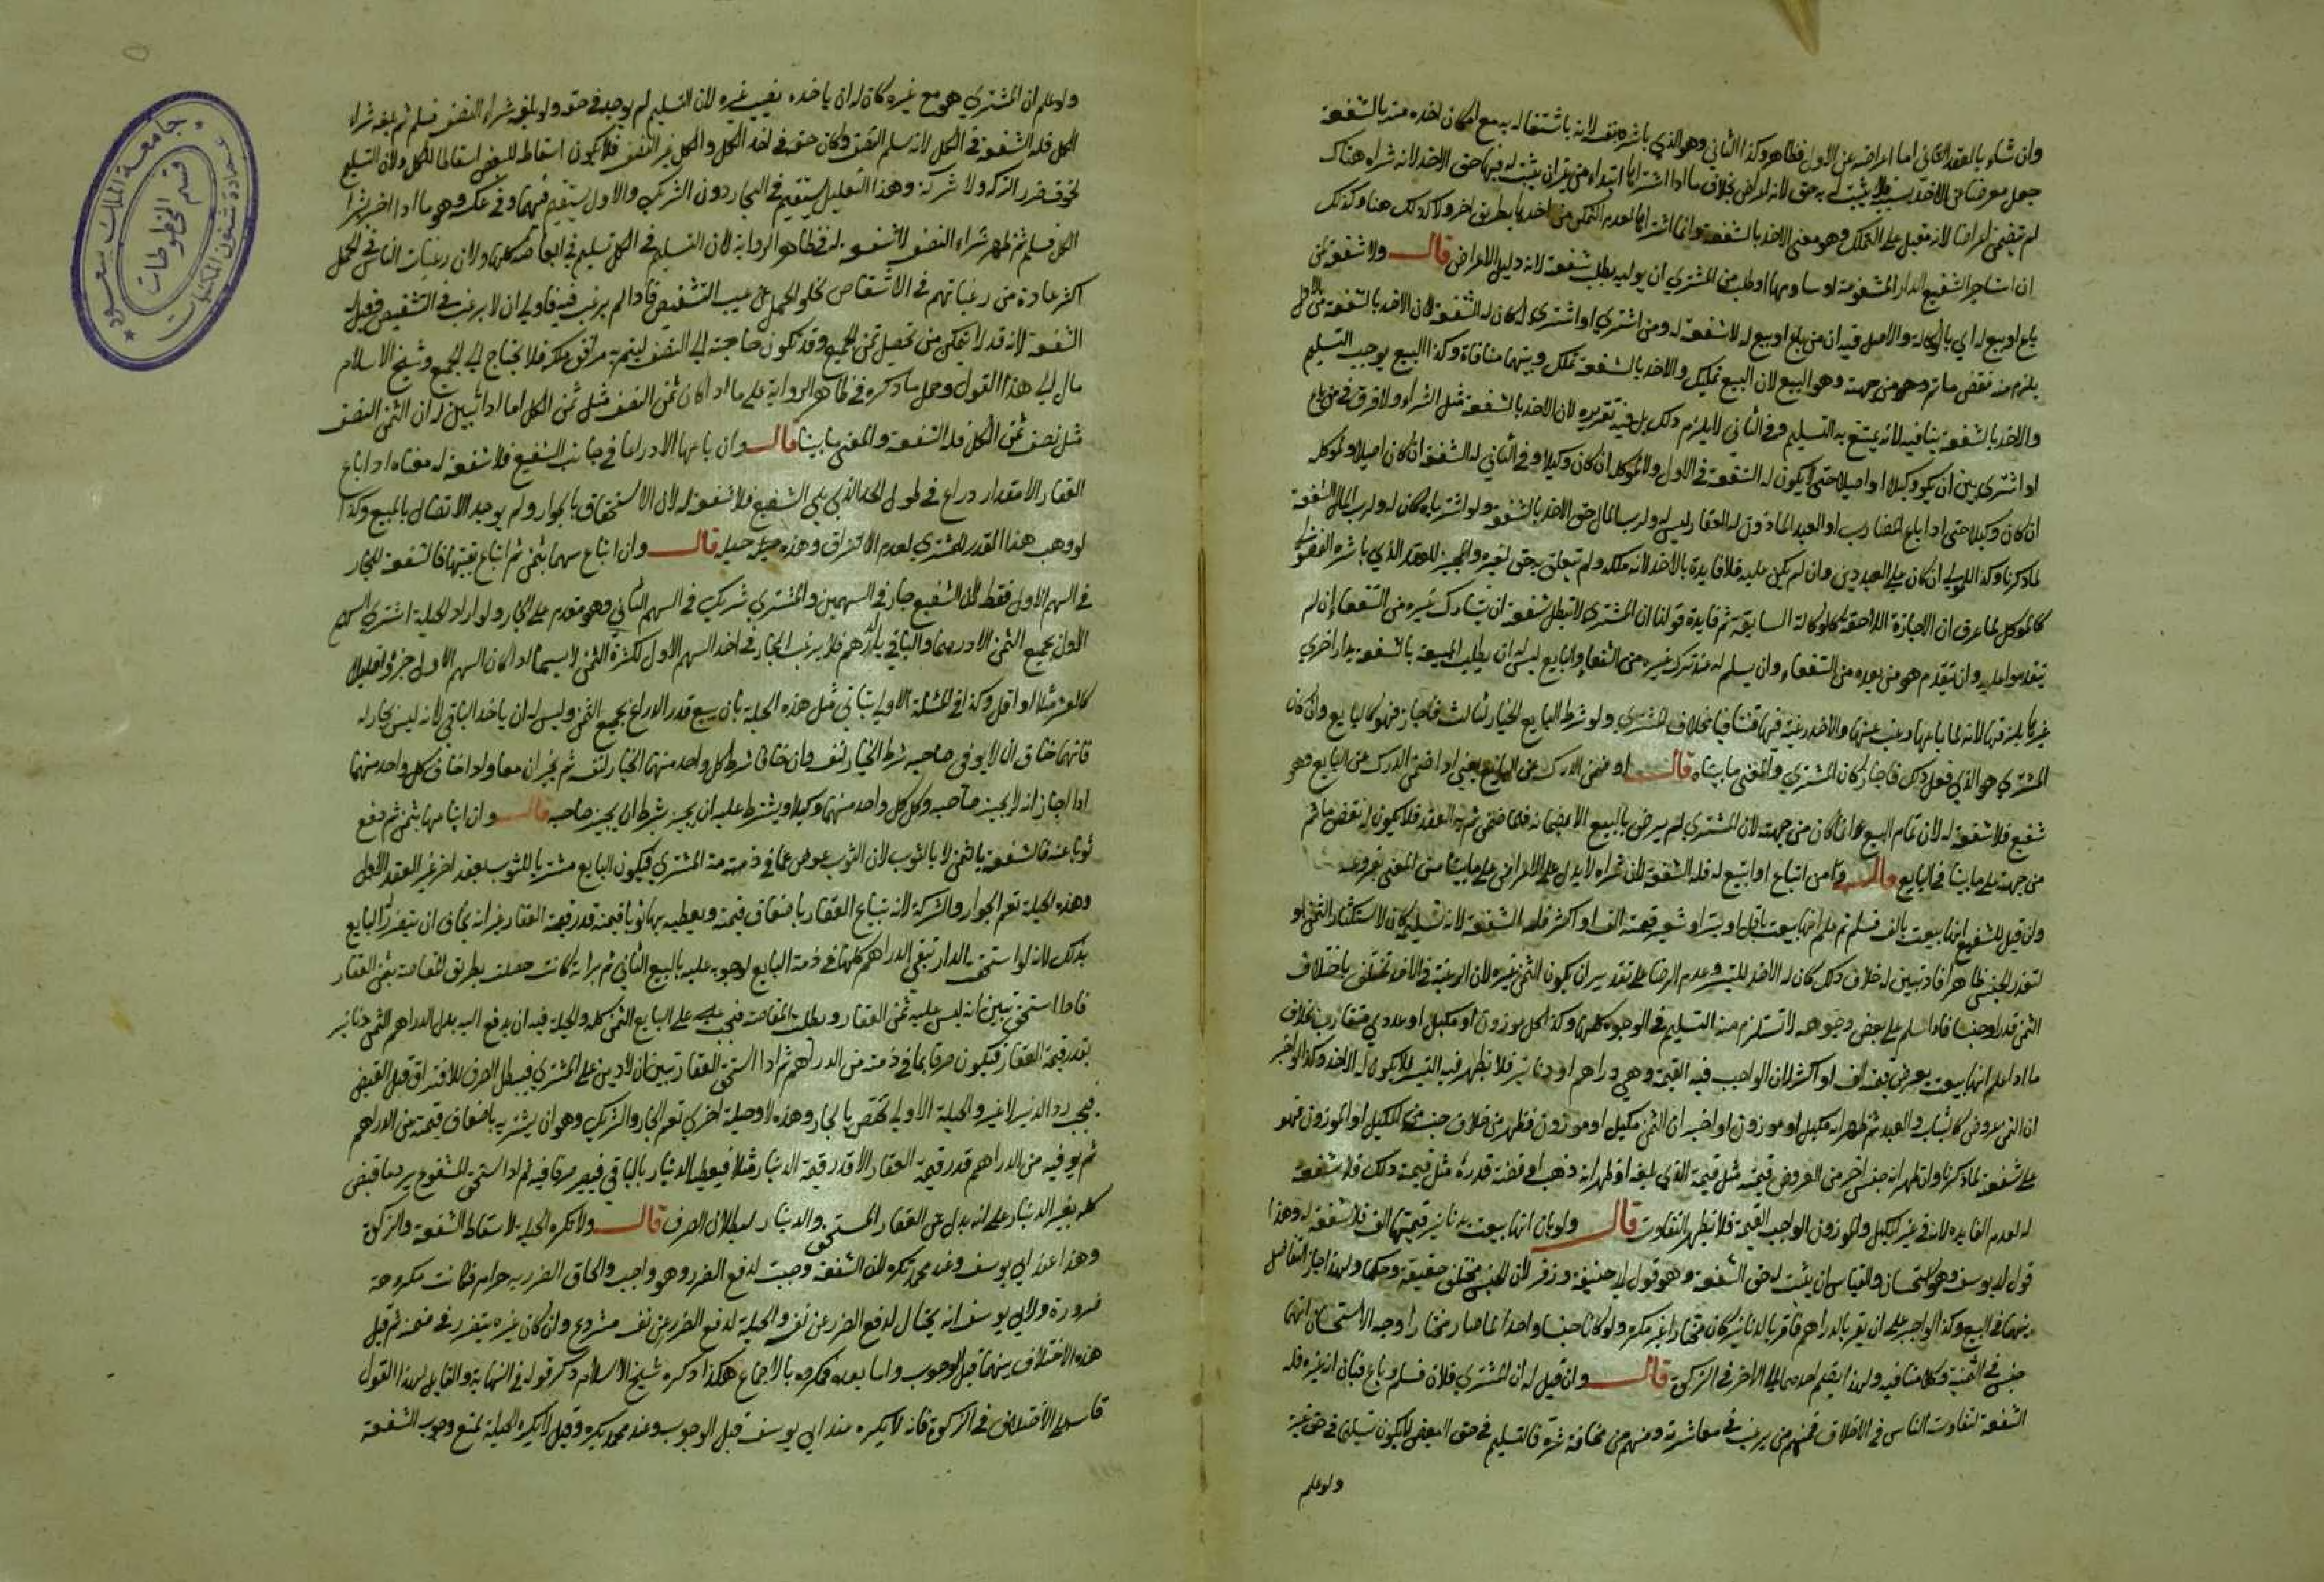 وان شاء بالعقد الثاني اما اعراضه عن الاول فظاهر وكذا الثاني وهو الذي باشره بنفسه لانه باشتغاله به مع امكان اخذه منه بالشفعة
جعل معرضا عن الاخذ بسببه فلا يثبت له به حق لانه اعرض بخلاف ما اذا اشتراها ابتداء من غير ان يثبت له فيها حق الاخذ لانه شراه هناك
لم يتضمن اعراضا لانه مقبل على التملك وهو معنى الاخذ بالشفعة وانما اشتراها لعدم التمكن من اخذها بطريق اخر ولا كذلك هنا وكذلك
ان استاجر الشفيع الدار المشفوعة او ساومها او طلب من المشتري ان يوليه بطلت شفعته لانه دليل الاعراض قال ولا شفعة لمن
باع او بيع له اي بالوكالة والاصل فيه ان من باع او بيع له لا شفعة له ومن اشترى او اشتري له كان له الشفعة لان الاخذ بالشفعة من الاول
يلزم منه نقض ما تم من جهته وهو البيع لان البيع تمليك والاخذ بالشفعة تملك وبينهما منافاة وكذا البيع يوجب التسليم
والاخذ بالشفعة ينافيه لانه يمتنع به التسليم وفي الثاني لا يلزم ذلك بل فيه تقريره لان الاخذ بالشفعة مثل الشراء ولا فرق في من باع
او اشترى بين ان يكون وكيلا او اصيلا حتى لا يكون له الشفعة في الاول ولا لموكله ان كان وكيلا وفي الثاني له الشفعة ان كان اصيلا ولموكله
ان كان وكيلا حتى اذا باع المضارب او العبد الماذون له العقار ليس له ولرب المال حق الاخذ بالشفعة ولو اشترياه كان له ولرب المال الشفعة
لما ذكرنا وكذا المولى ان كان على العبد دين وان لم يكن عليه فلا فايدة بالاخذ لانه ملكه ولم يتعلق به حق لغيره والمجيز للعقد الذي باشره الفضولي
كالموكل لما عرف ان الاجازة اللاحقة كالوكالة السابقة ثم فايدة قولنا ان المشتري لا تبطل شفعته ان يشارك غيره من الشفعاء ان لم
يتقدموا عليه وان يتقدم هو من بعده من الشفعاء وان يسلم له منه ترك غيره من الشفعاء والبايع ليس له ان يطلب المبيعة بالشفعة بدار اخرى
غيرها يلزقها لانه لما باعها رغب عنها والاخذ رغبة فيها فتنافيا بخلاف المشتري ولو شرط البايع الخيار لثالث فاجاز فهو كالبايع وان كان
المشتري هو الذي فعل ذلك فاجاز كان كالمشتري والمعنى ما بيناه قال او ضمن الدرك عن البايع يعني لو اضمن الدرك عن البايع وهو
شفيع فلا شفعة له لان تمام البيع انما كان من جهته لان المشتري لم يرض بالبيع الا بضمانه فلما ضمن تم به العقد فلا يكون له نقض ما تم
من جهته على ما بينا في البايع قال ومن ابتاع او ابتيع له فله الشفعة لان شراه لا يدل على الاعراض على ما بينا من المعنى بفروعه
وان قيل للشفيع انها بيعت بالف فسلم ثم علم انها بيعت باقل او ببر او شعير قيمته الف او اكثر فله الشفعة لان تسليمه كان لاستكثار الثمن او
لتعذر الجنس ظاهرا فاذا تبين له خلاف ذلك كان له الاخذ للتيسر وعدم الرضا على تقدير ان يكون الثمن غيره لان الرغبة في الاخذ تختلف باختلاف
الثمن قدرا وجنسا فاذا سلم على بعض وجوهه لا تستلزم منه التسليم في الوجوه كلها وكذا كل موزون او مكيل او عددي متقارب بخلاف
ما اذا علم انها بيعت بعرض قيمته الف او اكثر لان الواجب فيه القيمة وهي دراهم او دنانير فلا يظهر فيه التيسر فلا يكون له الاخذ وكذا لو اخبر
ان الثمن عروض كالثياب والعبيد ثم ظهر انه مكيل او موزون او اخبر ان الثمن مكيل او موزون فظهر من خلاف جنسه المكيل او الموزون فهو
على شفعته لما ذكرنا وان ظهر انه جنس اخر من العروض قيمته مثل قيمة الذي بلغه او ظهر انه ذهب او فضة قدره مثل قيمة ذلك فلا شفعة
له لعدم الفايدة لان في غير المكيل والموزون الواجب القيمة فلا يظهر التفاوت قال ولو بان انها بيعت بدنانير قيمتها الف فلا شفعة له وهذا
قول ابي يوسف وهو استحسان والقياس ان يثبت له حق الشفعة وهو قول ابي حنيفة وزفر لان الجنس مختلف حقيقة وحكما ولهذا جاز التفاضل
بينهما في البيع وكذا لو اجبر على ان يقر بالدراهم فاقر بالدنانير كان مختارا غير مكره ولو كانا جنسا واحدا لما صار مختارا وجه الاستحسان انهما
جنس في الثمنية وكلامنا فيه ولهذا يضم احدهما الى الاخر في الزكوة قال وان قيل له ان المشتري فلان فسلم وباع فبان انه غيره فله
الشفعة لتفاوت الناس في الاخلاق فمنهم من يرغب في معاشرته ومنهم من مخافة شره فالتسليم في حق البعض لا يكون تسليما في حق غيره
ولو علم
ولو علم ان المشتري هو مع غيره كان له ان ياخذ نصيب غيره لان التسليم لم يوجد في حقه ولو بلغه شراء النصف فسلم ثم بلغه شراء
الكل فله الشفعة في الكل لانه سلم النصف وكان حقه في اخذ الكل والكل غير النصف فلا يكون اسقاط البعض اسقاطا للكل ولان التسليم
لخوف ضرر الشركة ولا شركة وهذا التعليل يستقيم في الجار دون الشريك والاول يستقيم فيهما وفي عكسه وهو ما اذا اخبر بشراء
الكل فسلم ثم ظهر شراء النصف لا شفعة له في ظاهر الرواية لان التسليم في الكل تسليم في ابعاضه كلها ولان رغبات الناس في الجمل
اكثر عادة من رغباتهم في الاشقاص لخلو الجمل عن عيب التشقيص فاذا لم يرغب فيه فاولى ان لا يرغب في التشقيص وقيل له
الشفعة لانه قد لا يتمكن من تحصيل ثمن الجميع وقد تكون حاجته الى النصف ليتم به مرافق ملكه فلا يحتاج الى الجميع وشيخ الاسلام
مال الى هذا القول وحمل ما ذكره في ظاهر الرواية على ما اذا كان ثمن النصف مثل ثمن الكل اما اذا تبين له ان الثمن النصف
مثل نصف ثمن الكل فله الشفعة والمعنى ما بينا قال وان باعها الا ذراعا في جانب الشفيع فلا شفعة له معناه اذا باع
العقار الا مقدار ذراع في طول الحد الذي يلي الشفيع فلا شفعة له لان الاستحقاق بالجوار ولم يوجد الاتصال بالمبيع وكذا
لو وهب هذا القدر للمشتري لعدم الالتزاق وهذه حيلة قال وان ابتاع سهما بثمن ثم ابتاع بقيتها فالشفعة للجار
في السهم الاول فقط لان الشفيع جار في السهمين والمشتري شريك في السهم الثاني وهو مقدم على الجار ولو اراد الحيلة اشترى السهم
الاول بجميع الثمن الا درهما والباقي بالدرهم فلا يرغب الجار في اخذ السهم الاول لكثرة الثمن لا سيما اذا كان السهم الاول جزءا قليلا
كالعشر مثلا او اقل وكذا في المسئلة الاولى يتاتى مثل هذه الحيلة بان يبيع قدر الذراع بجميع الثمن وليس له ان ياخذ الباقي لانه ليس بجار له
فانهما خاف ان لا يوفي صاحبه شرط الخيار لنفسه وان خافا شرط كل واحد منهما الخيار لنفسه ثم يجيزان معا ولو خاف كل واحد منهما
اذا اجاز ان لا يجيز صاحبه وكل كل واحد منهما وكيلا ويشترط عليه ان يجيز بشرط ان يجيز صاحبه قال وان ابتاعها بثمن ثم دفع
ثوبا عنه فالشفعة بالثمن لا بالثوب لان الثوب عوض عما في ذمة المشتري فيكون البايع مشتريا للثوب بعقد اخر غير العقد الاول
وهذه الحيلة تعم الجوار والشركة لانه يبتاع العقار باضعاف قيمته ويعطيه بها ثوبا قيمته قدر قيمة العقار غير انه يخاف ان يتضرر البايع
بذلك لانه لو استحق الدار تبقى الدراهم كلها في ذمة البايع لوجوبه عليه بالبيع الثاني ثم براءته كانت حصلت بطريق المقاصة بثمن العقار
فاذا استحق تبين انه ليس عليه ثمن العقار وبطلت المقاصة فيجب على البايع الثمن كله والحيلة فيه ان يدفع اليه بدل الدراهم الثمن دنانير
بقدر قيمة العقار فيكون صرفا بما في ذمته من الدراهم ثم اذا استحق العقار تبين ان لا دين على المشتري فيبطل الصرف للافتراق قبل القبض
فيجب رد الدنانير لا غير والحيلة الاولى تختص بالجار وهذه لا وحيلة اخرى تعم الجار والشريك وهو ان يشتريه باضعاف قيمته من الدراهم
ثم يوفيه من الدراهم قدر قيمة العقار الا قدر قيمة الدينار مثلا فيعطيه الدينار بالباقي فيصير صرفا فيه ثم اذا استحق المشفوع يرد ما قبض
كله بغير الدينار على انه بدل عن العقار المستحق والدينار لبطلان الصرف قال ولا تكره الحيلة لاسقاط الشفعة والزكوة
وهذا عند ابي يوسف وعند محمد تكره لان الشفعة وجبت لدفع الضرر وهو واجب والحاق الضرر به حرام فكانت مكروهة
ضرورة ولابي يوسف انه يحتال لدفع الضرر عن نفسه والحيلة لدفع الضرر عن نفسه مشروع وان كان غيره يتضرر في ضمنه ثم قيل
هذه الاختلاف بينهما قبل الوجوب واما بعده فمكروه بالاجماع هكذا ذكره شيخ الاسلام وذكر قوله في النهاية والقايل لهذا القول
قاسه على الاختلاف في الزكوة فانه لا يكره عند ابي يوسف قبل الوجوب وعند محمد يكره وقيل لا يكره الحيلة لمنع وجوب الشفعة
جامعة الملك سعود
عمادة شئون المكتبات
قسم المخطوطات